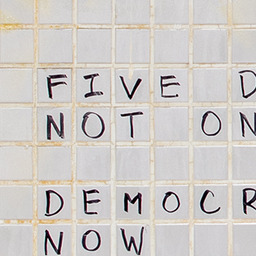 FIVE D
NOT ON
DEMOCR
NOW